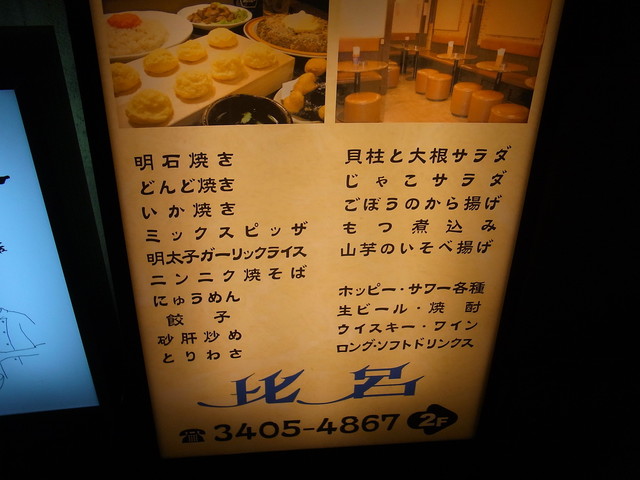 明石焼き
どんど焼き
いか焼き
ミックスピッザ
明太子ガーリックライス
ニンニク焼そば
にゅうめん
餃子
砂肝炒め
とりわさ
貝柱と大根サラダ
じゃこサラダ
ごぼうのから揚げ
もつ煮込み
山芋のいそべ揚げ
ホッピー・サワー各種
生ビール・焼酎
ウイスキー・ワイン
ロング・ソフトドリンクス
比呂
☎3405-4867 2F